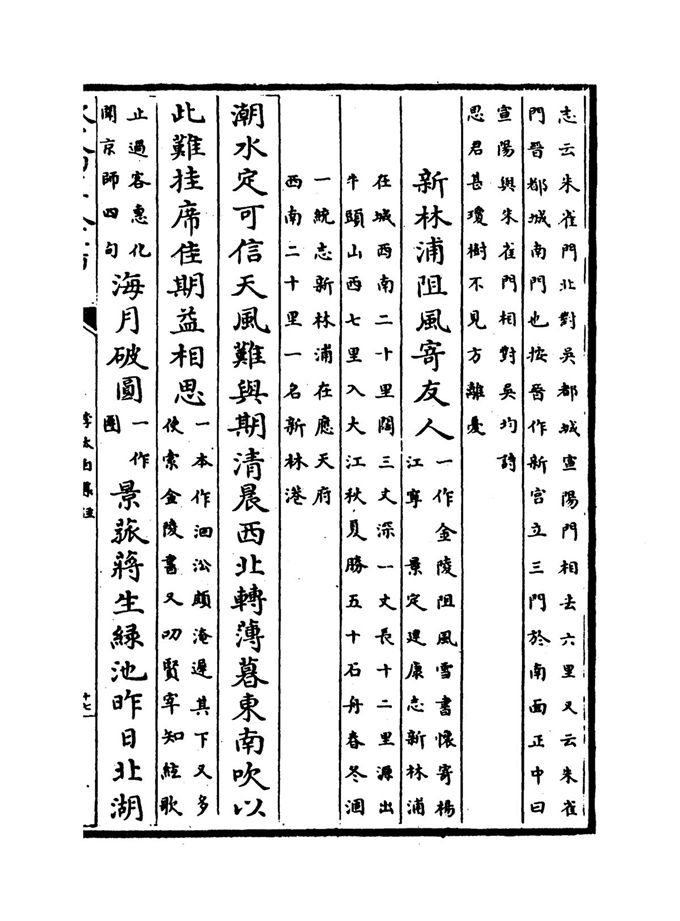 志云朱雀門北對吳都城宣陽門相去六里又云朱雀
門晉都城南門也按晉作新宮立三門於南面正中曰
宣陽與朱雀門相對吳均詩
思君甚瓊樹不見方離憂
新林浦阻風寄友人
一作金陵阻風雪書懷寄楊
江寧　景定建康志新林浦
在城西南二十里闊三丈深一丈長十二里源出
牛頭山西七里入大江秋夏勝五十石舟春冬涸
一統志新林浦在應天府
西南二十里一名新林港
潮水定可信天風難與期清晨西北轉薄暮東南吹以
此難挂席佳期益相思
一本作洄㳂頗淹遲其下又多
使索金陵書又叨賢宰知絃歌
止過客惠化
聞京師四句
海月破圓
一作
團
景菰蔣生緑池昨日北湖
李太白集注
十七